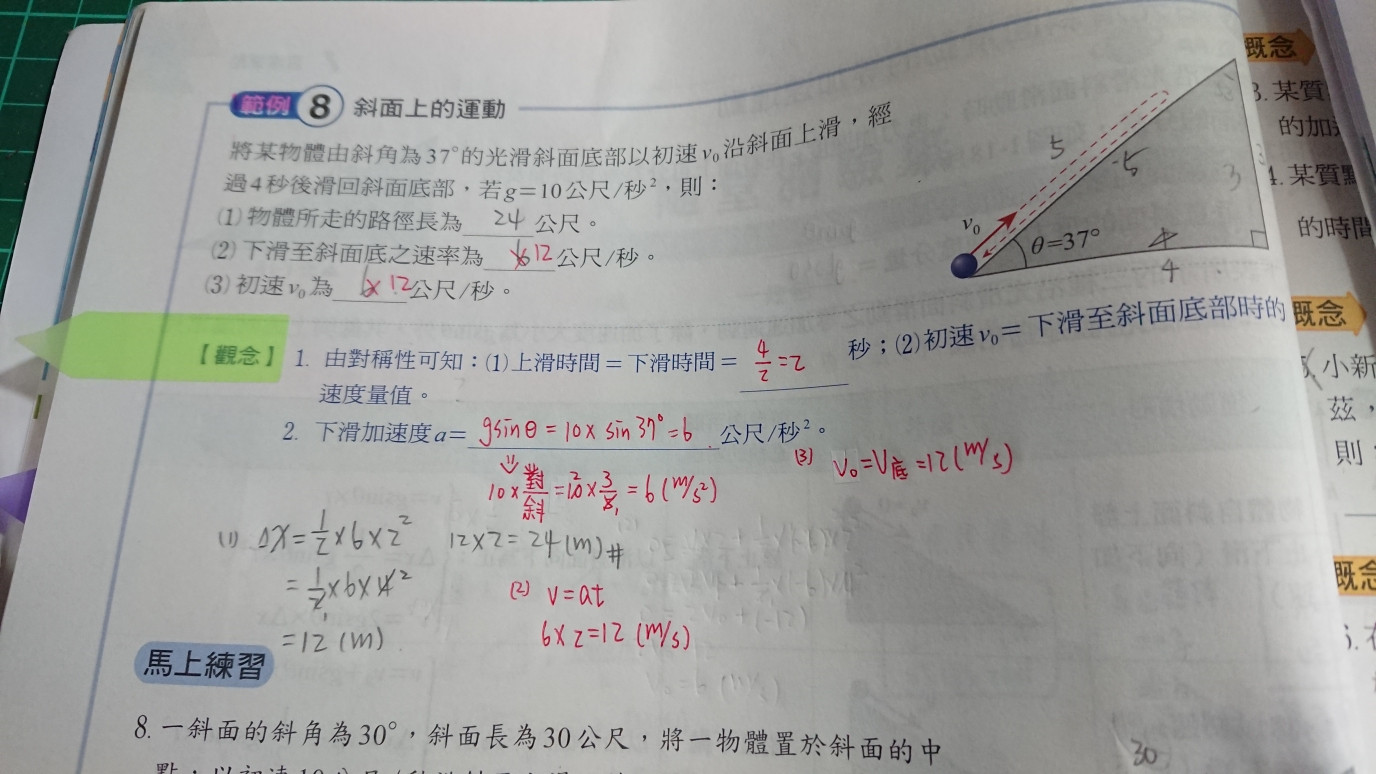 範例 8 斜面上的運動
將某物體由斜角為37°的光滑斜面底部以初速v₀沿斜面上滑，經
過4秒後滑回斜面底部，若g＝10公尺/秒²，則：
(1) 物體所走的路徑長為 24 公尺。
(2) 下滑至斜面底之速率為 6 12 公尺/秒。
(3) 初速v₀為 6 12 公尺/秒。
5
5
3
v₀
θ=37°
4
4
【觀念】 1. 由對稱性可知：(1)上滑時間＝下滑時間＝ 4/2 =2 秒；(2)初速v₀＝下滑至斜面底部時的
速度量值。
2. 下滑加速度a＝ gsinθ = 10 x sin37° = 6 公尺/秒²。
10 x 對/斜 = 10 x 3/5 = 6 (m/s²)
(3) V₀=V底=12(m/s)
(1) Δx = 1/2 x 6 x 2² 12 x 2 = 24 (m)#
= 1/2 x 6 x 4²
= 12 (m)
(2) v=at
6 x 2 = 12 (m/s)
馬上練習
8. 一斜面的斜角為30°，斜面長為30公尺，將一物體置於斜面的中
30
概念
3. 某質
的加
4. 某質
的時間
概念
小新
茲，
則
概念